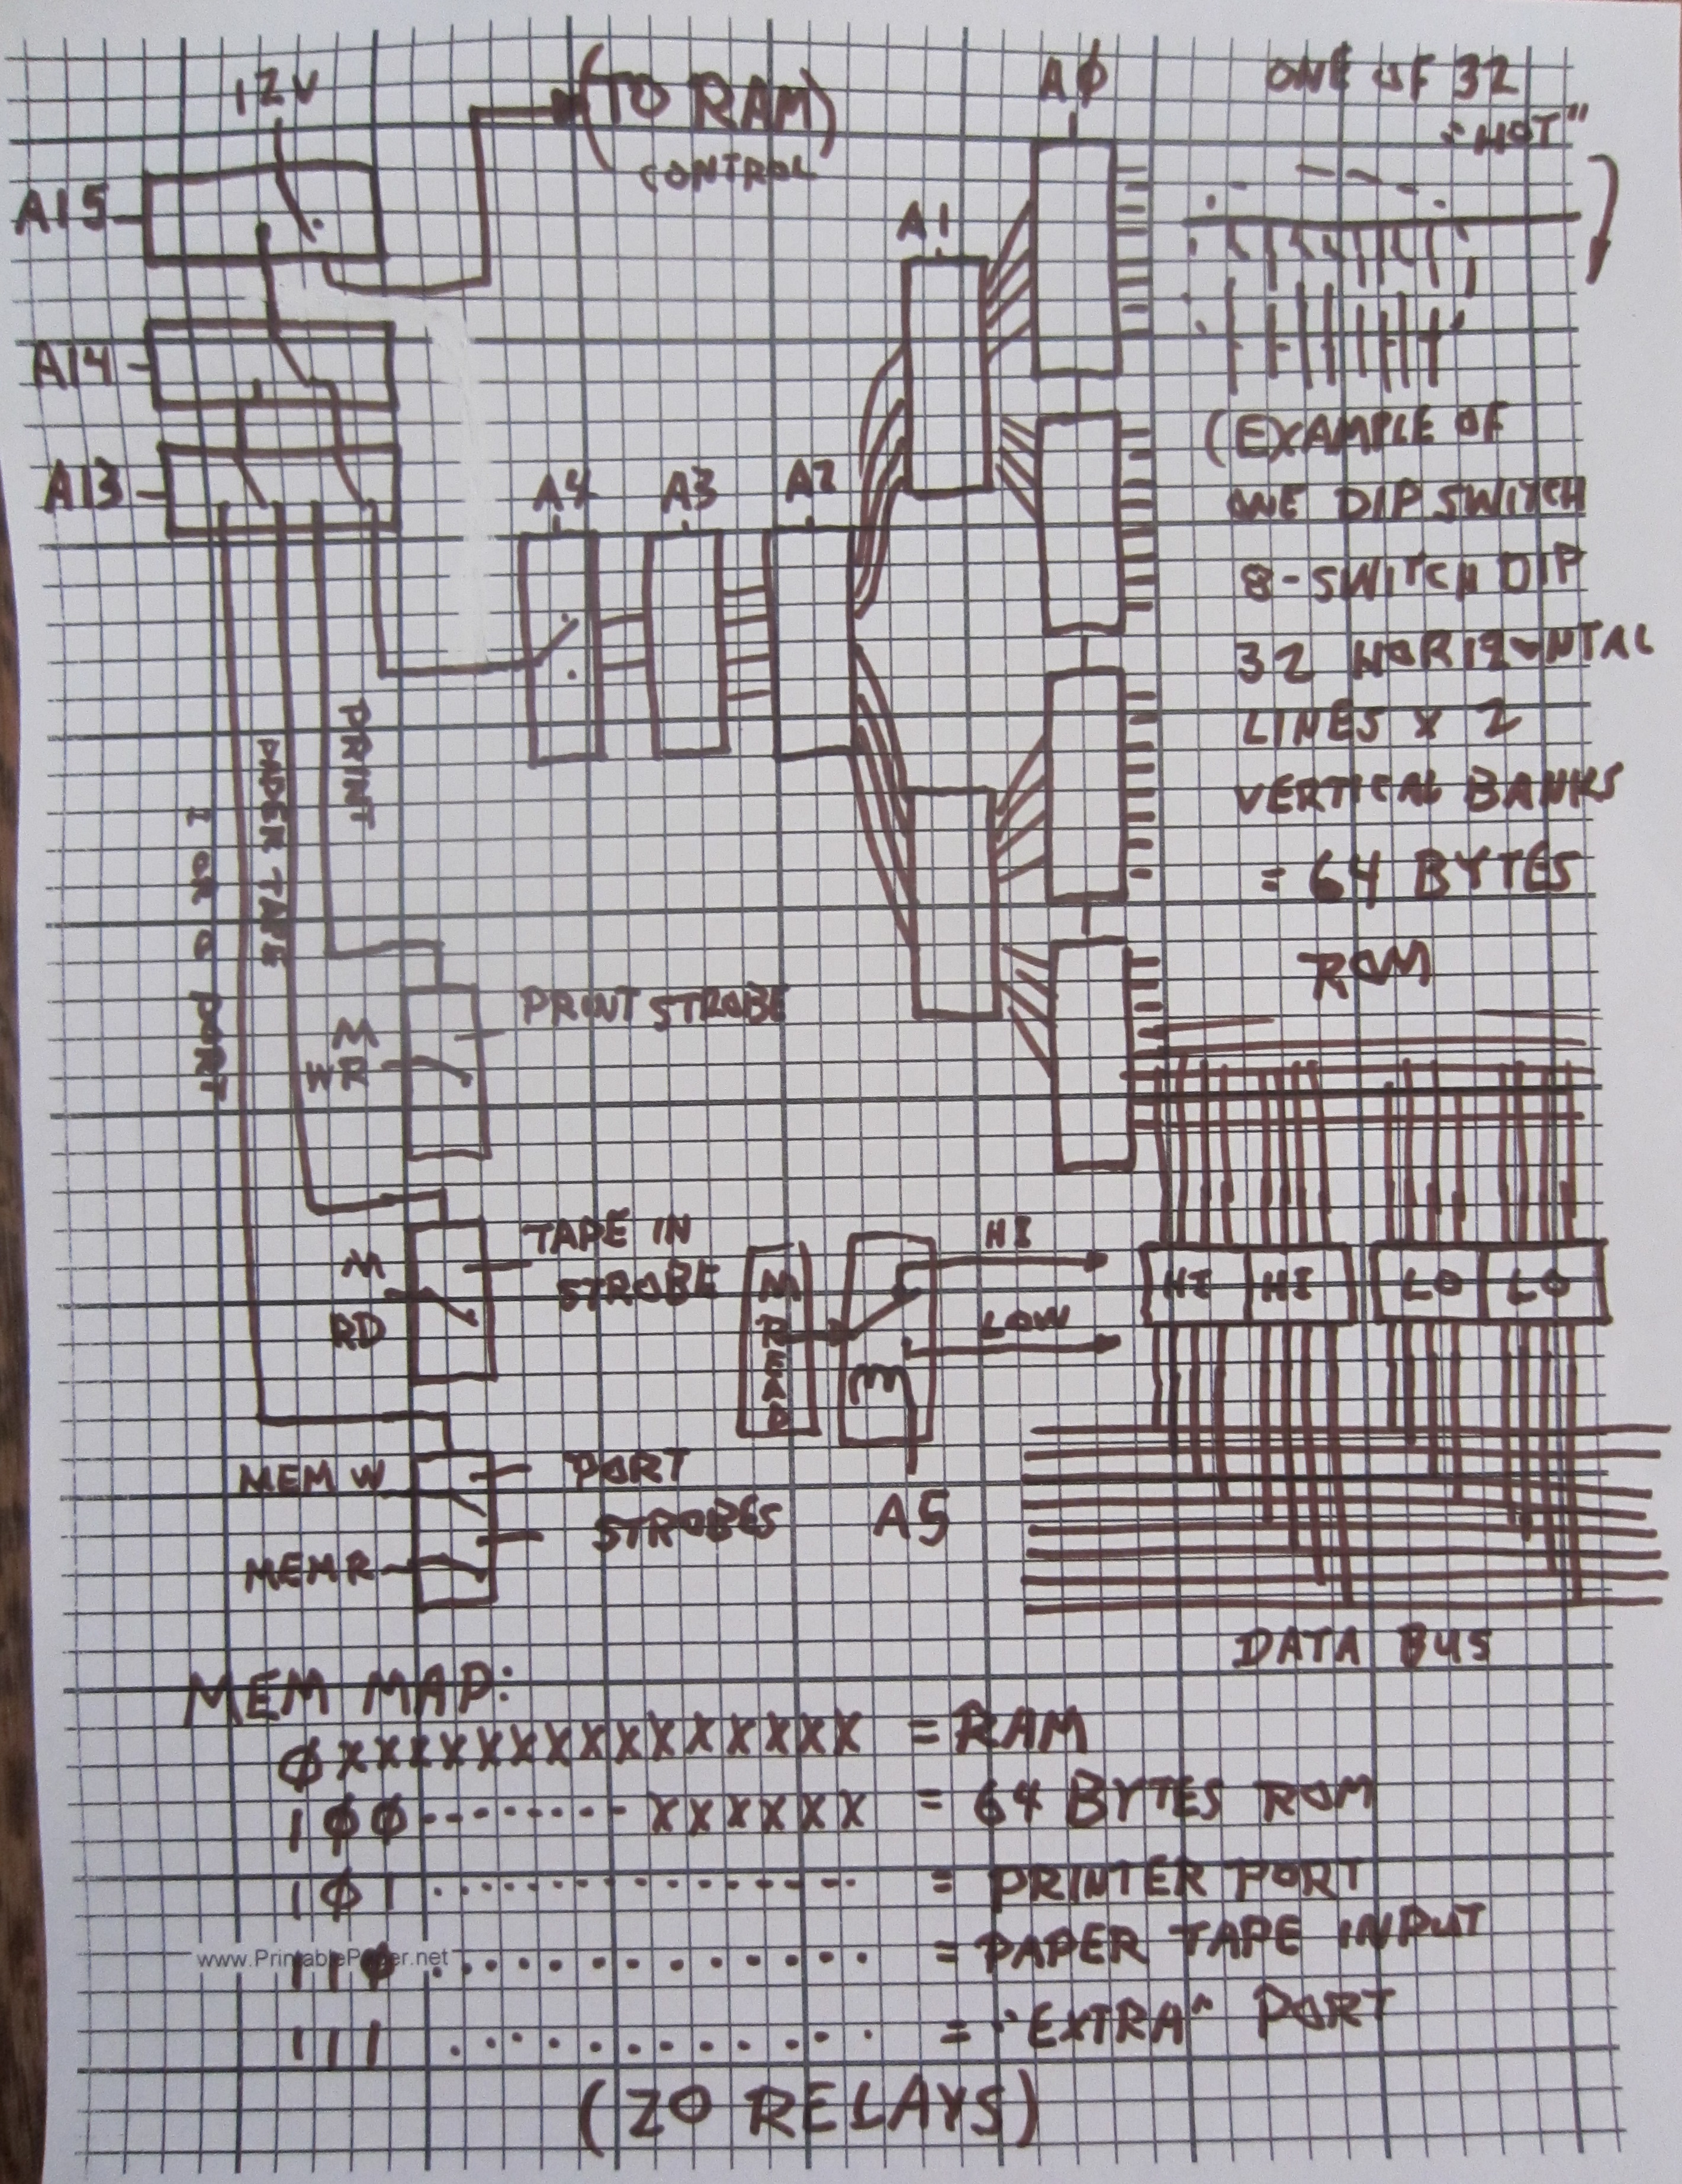 12V
(TO RAM)
CONTROL
A15
A14
A13
AØ
A1
A4
A3
A2
ONE OF 32
"HOT"
(EXAMPLE OF
ONE DIP SWITCH
8-SWITCH DIP
32 HORIZONTAL
LINES X 2
VERTICAL BANKS
= 64 BYTES
ROM
PRINT
PAPER TAPE
I OR O PORT
M
WR
PRINT STROBE
M
RD
TAPE IN
STROBE
MREAD
HI
LOW
A5
HI
HI
LO
LO
MEM W
MEM R
PORT
STROBES
DATA BUS
MEM MAP:
ØXXXXXXXXXXXXXXX = RAM
1ØØ-------XXXXXX = 64 BYTES ROM
1Ø1 ............. = PRINTER PORT
11Ø ............. = PAPER TAPE INPUT
www.PrintablePaper.net
111 ............. = "EXTRA" PORT
(20 RELAYS)